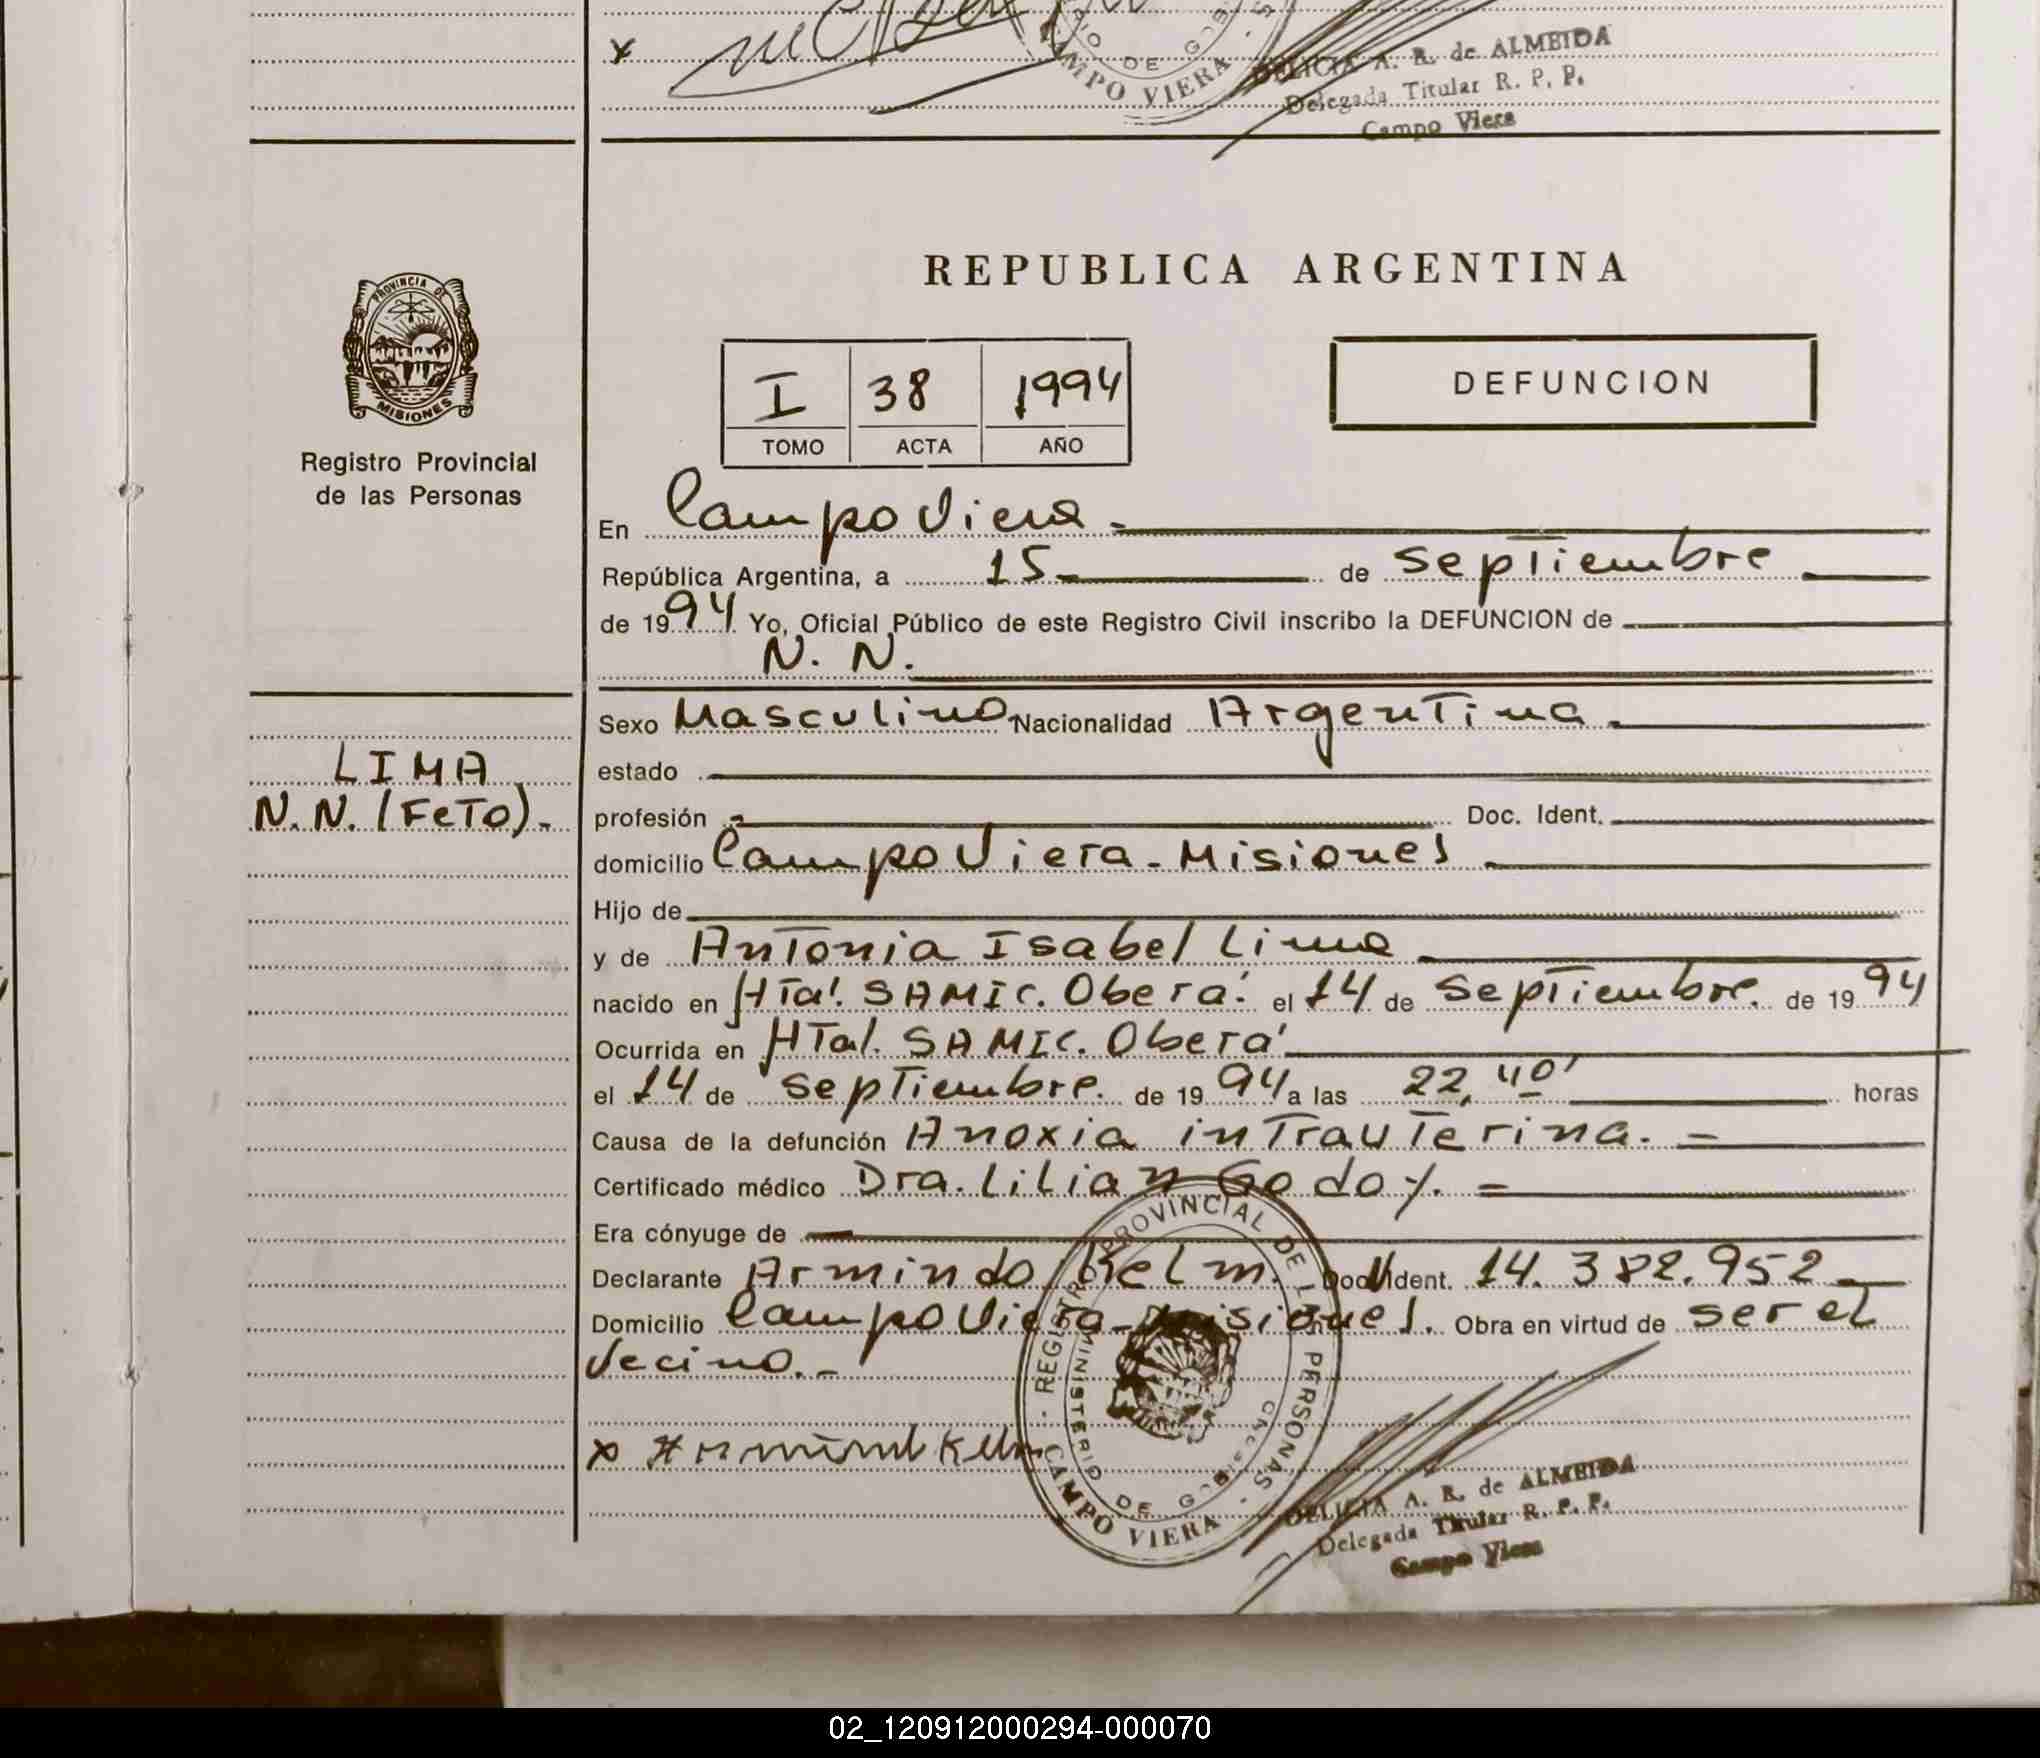 x
RIO DE GOB
CAMPO VIERA
DELICIA A. R. de ALMEIDA
Delegada Titular R. P. P.
Campo Viera
PROVINCIA DE
MISIONES
Registro Provincial
de las Personas
REPUBLICA ARGENTINA
I 38 1994
TOMO ACTA AÑO
DEFUNCION
En Campo Viera -
República Argentina, a 15 - de Septiembre
de 1994 Yo, Oficial Público de este Registro Civil inscribo la DEFUNCION de
N. N.
LIMA
N. N. (FeTo). -
Sexo Masculino Nacionalidad Argentina -
estado
profesión Doc. Ident.
domicilio Campo Viera - Misiones
Hijo de
y de Antonia Isabel Lima
nacido en Htal. SAMIC. Oberá. el 14 de Septiembre. de 1994
Ocurrida en Htal. SAMIC. Oberá
el 14 de Septiembre. de 1994 a las 22,40' horas
Causa de la defunción Anoxia intrauterina. =
Certificado médico Dra. Lilian Godoy. =
Era cónyuge de
Declarante Armindo Kelm. Doc. Ident. 14.382.952
Domicilio Campo Viera - Misiones. Obra en virtud de ser el
Vecino. -
x Armindo Kelm
REGISTRO PROVINCIAL DE LAS PERSONAS
MINISTERIO DE GOBIERNO
CAMPO VIERA
DELICIA A. R. de ALMEIDA
Delegada Titular R. P. P.
Campo Viera
02_120912000294-000070